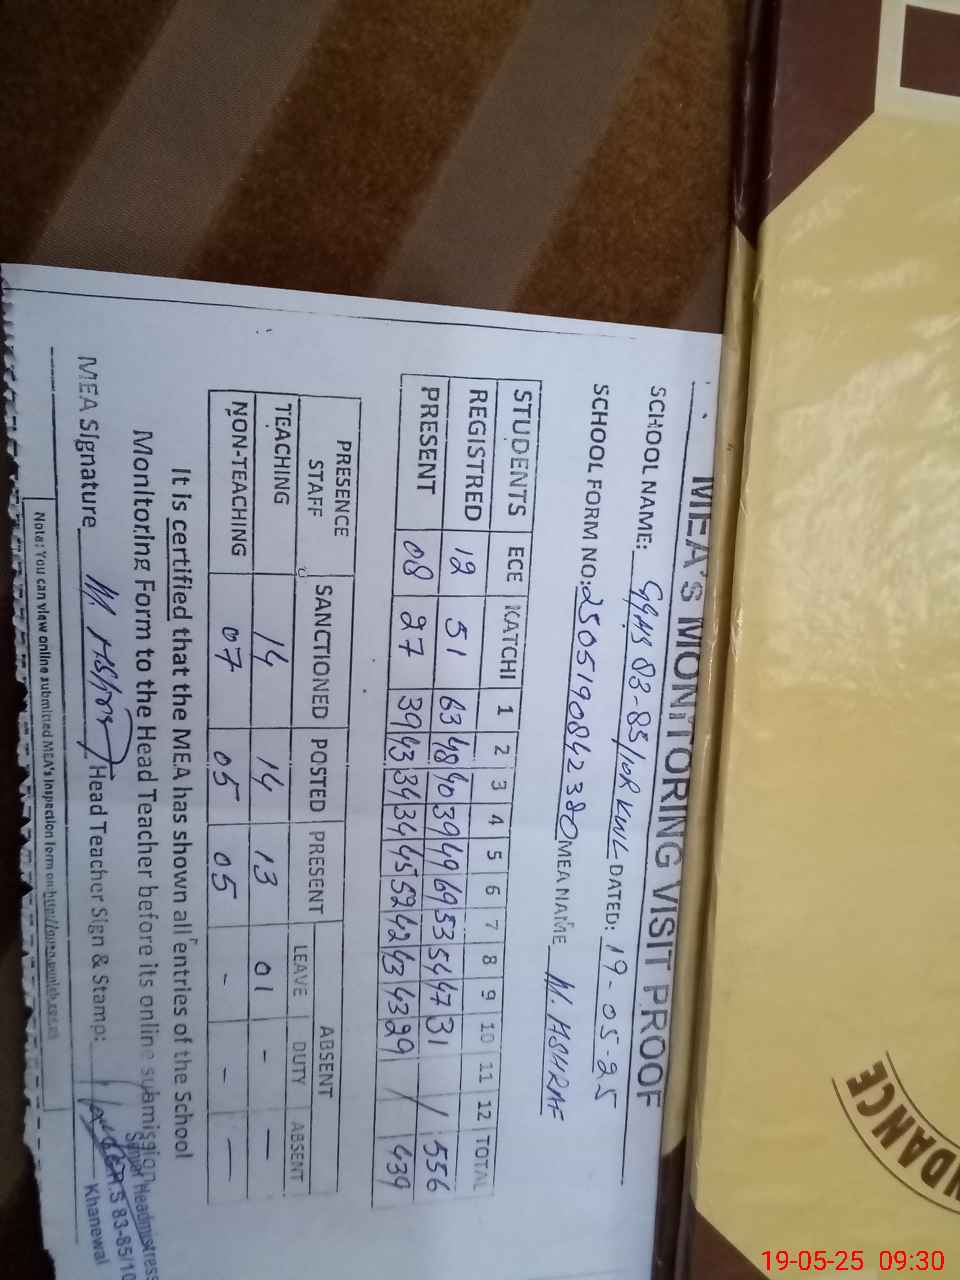 MEA'S MONITORING VISIT PROOF
SCHOOL NAME: GGHS 83-85/10R KWL DATED: 19-05-25
SCHOOL FORM NO: 2505190842380 MEA NAME M. ASHRAF
STUDENTS ECE KATCHI 1 2 3 4 5 6 7 8 9 10 11 12 TOTAL
REGISTRED 12 51 63 48 40 39 49 69 53 54 47 31 / 556
PRESENT 08 27 39 43 34 34 45 52 42 43 43 29 / 439
PRESENCE STAFF SANCTIONED POSTED PRESENT ABSENT
LEAVE DUTY ABSENT
TEACHING 14 14 13 01 - -
NON-TEACHING 07 05 05 - - -
It is certified that the MEA has shown all entries of the School
Monitoring Form to the Head Teacher before its online submission
MEA Signature M. Ashraf Head Teacher Sign & Stamp:
Senior Headmistress
G.G.H.S 83-85/10
Khanewal
Note: You can view online submitted MEA's Inspection form on:
NDANCE
19-05-25 09:30